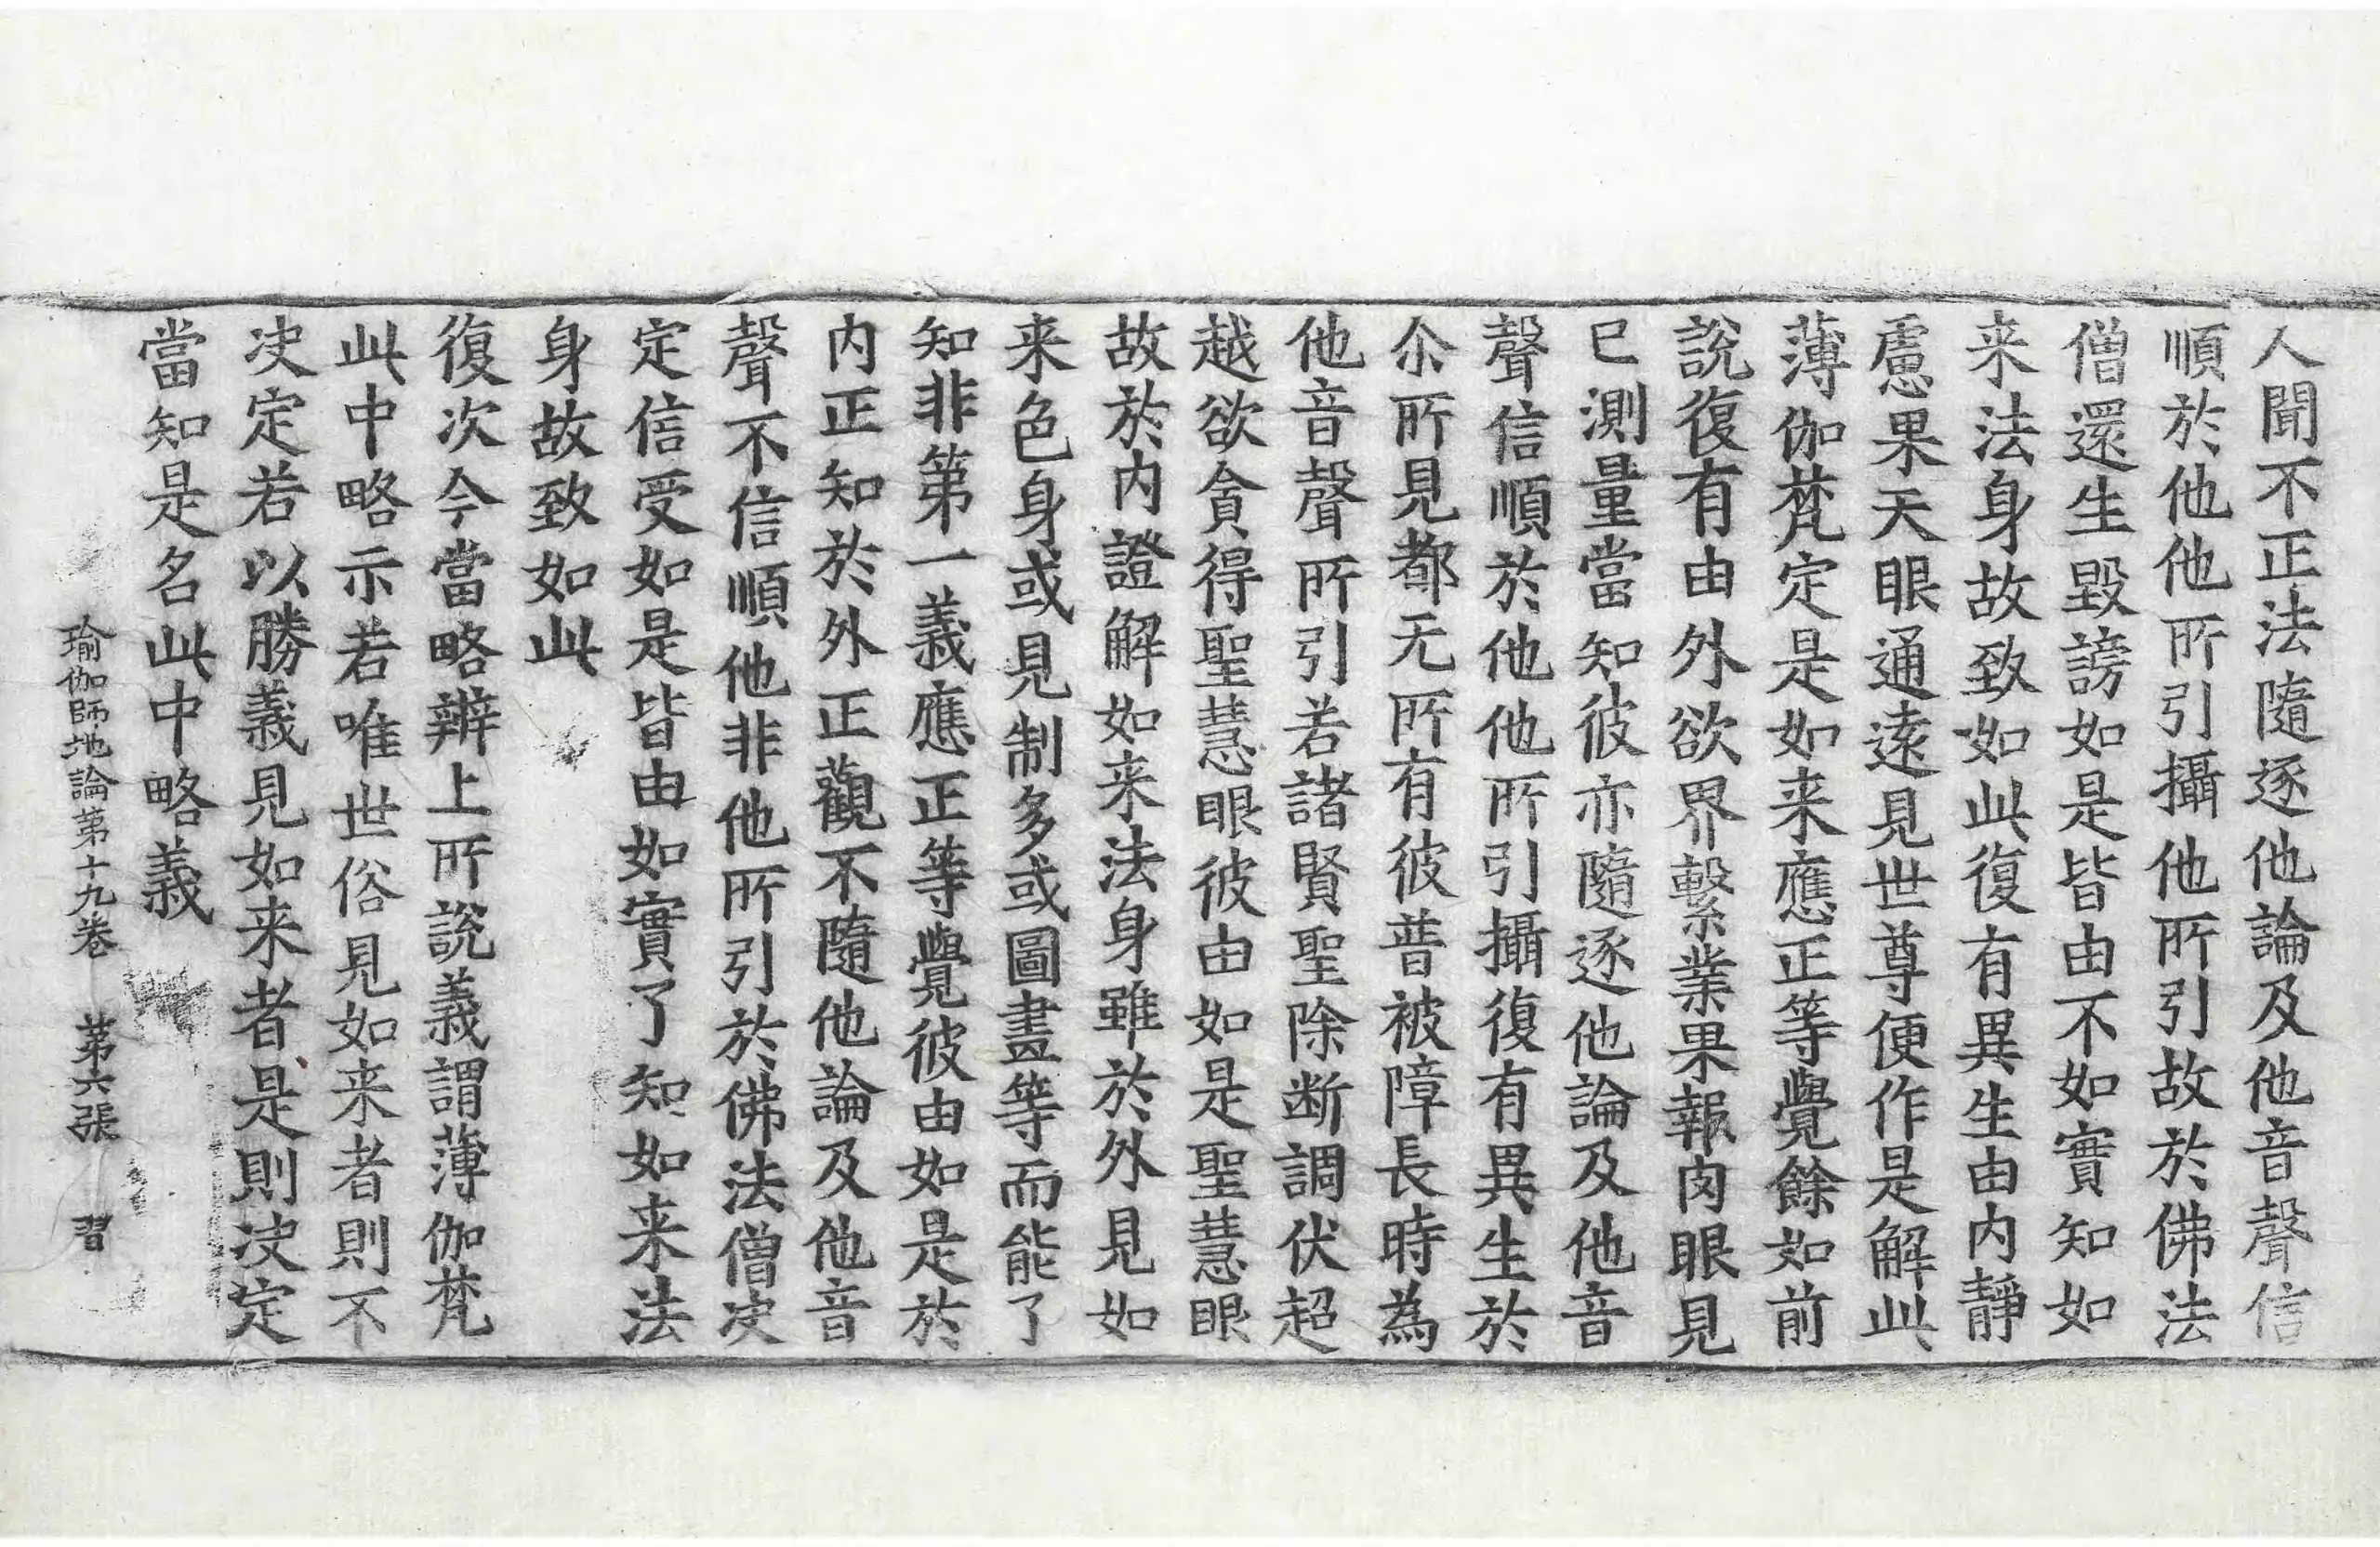 人聞不正法隨逐他論及他音聲信
順於他他所引攝他所引故於佛法
僧還生毀謗如是皆由不如實知如
来法身故致如此復有異生由内靜
慮果天眼通遠見世尊便作是解此
薄伽梵定是如来應正等覺餘如前
說復有由外欲界繫業果報肉眼見
已測量當知彼亦隨逐他論及他音
聲信順於他他所引攝復有異生於
尒所見都无所有彼普被障長時為
他音聲所引若諸賢聖除断調伏超
越欲貪得聖慧眼彼由如是聖慧眼
故於内證解如来法身雖於外見如
来色身或見制多或圖畫等而能了
知非第一義應正等覺彼由如是於
内正知於外正觀不隨他論及他音
聲不信順他非他所引於佛法僧决
定信受如是皆由如實了知如来法
身故致如此
復次今當略辨上所說義謂薄伽梵
此中略示若唯世俗見如来者則不
决定若以勝義見如来者是則决定
當知是名此中略義
瑜伽師地論第十九卷 第六張 習